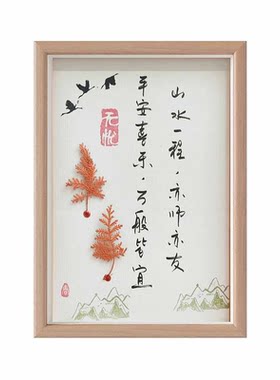 山水一程，亦师亦友
平安喜乐，万般皆宜
无忧